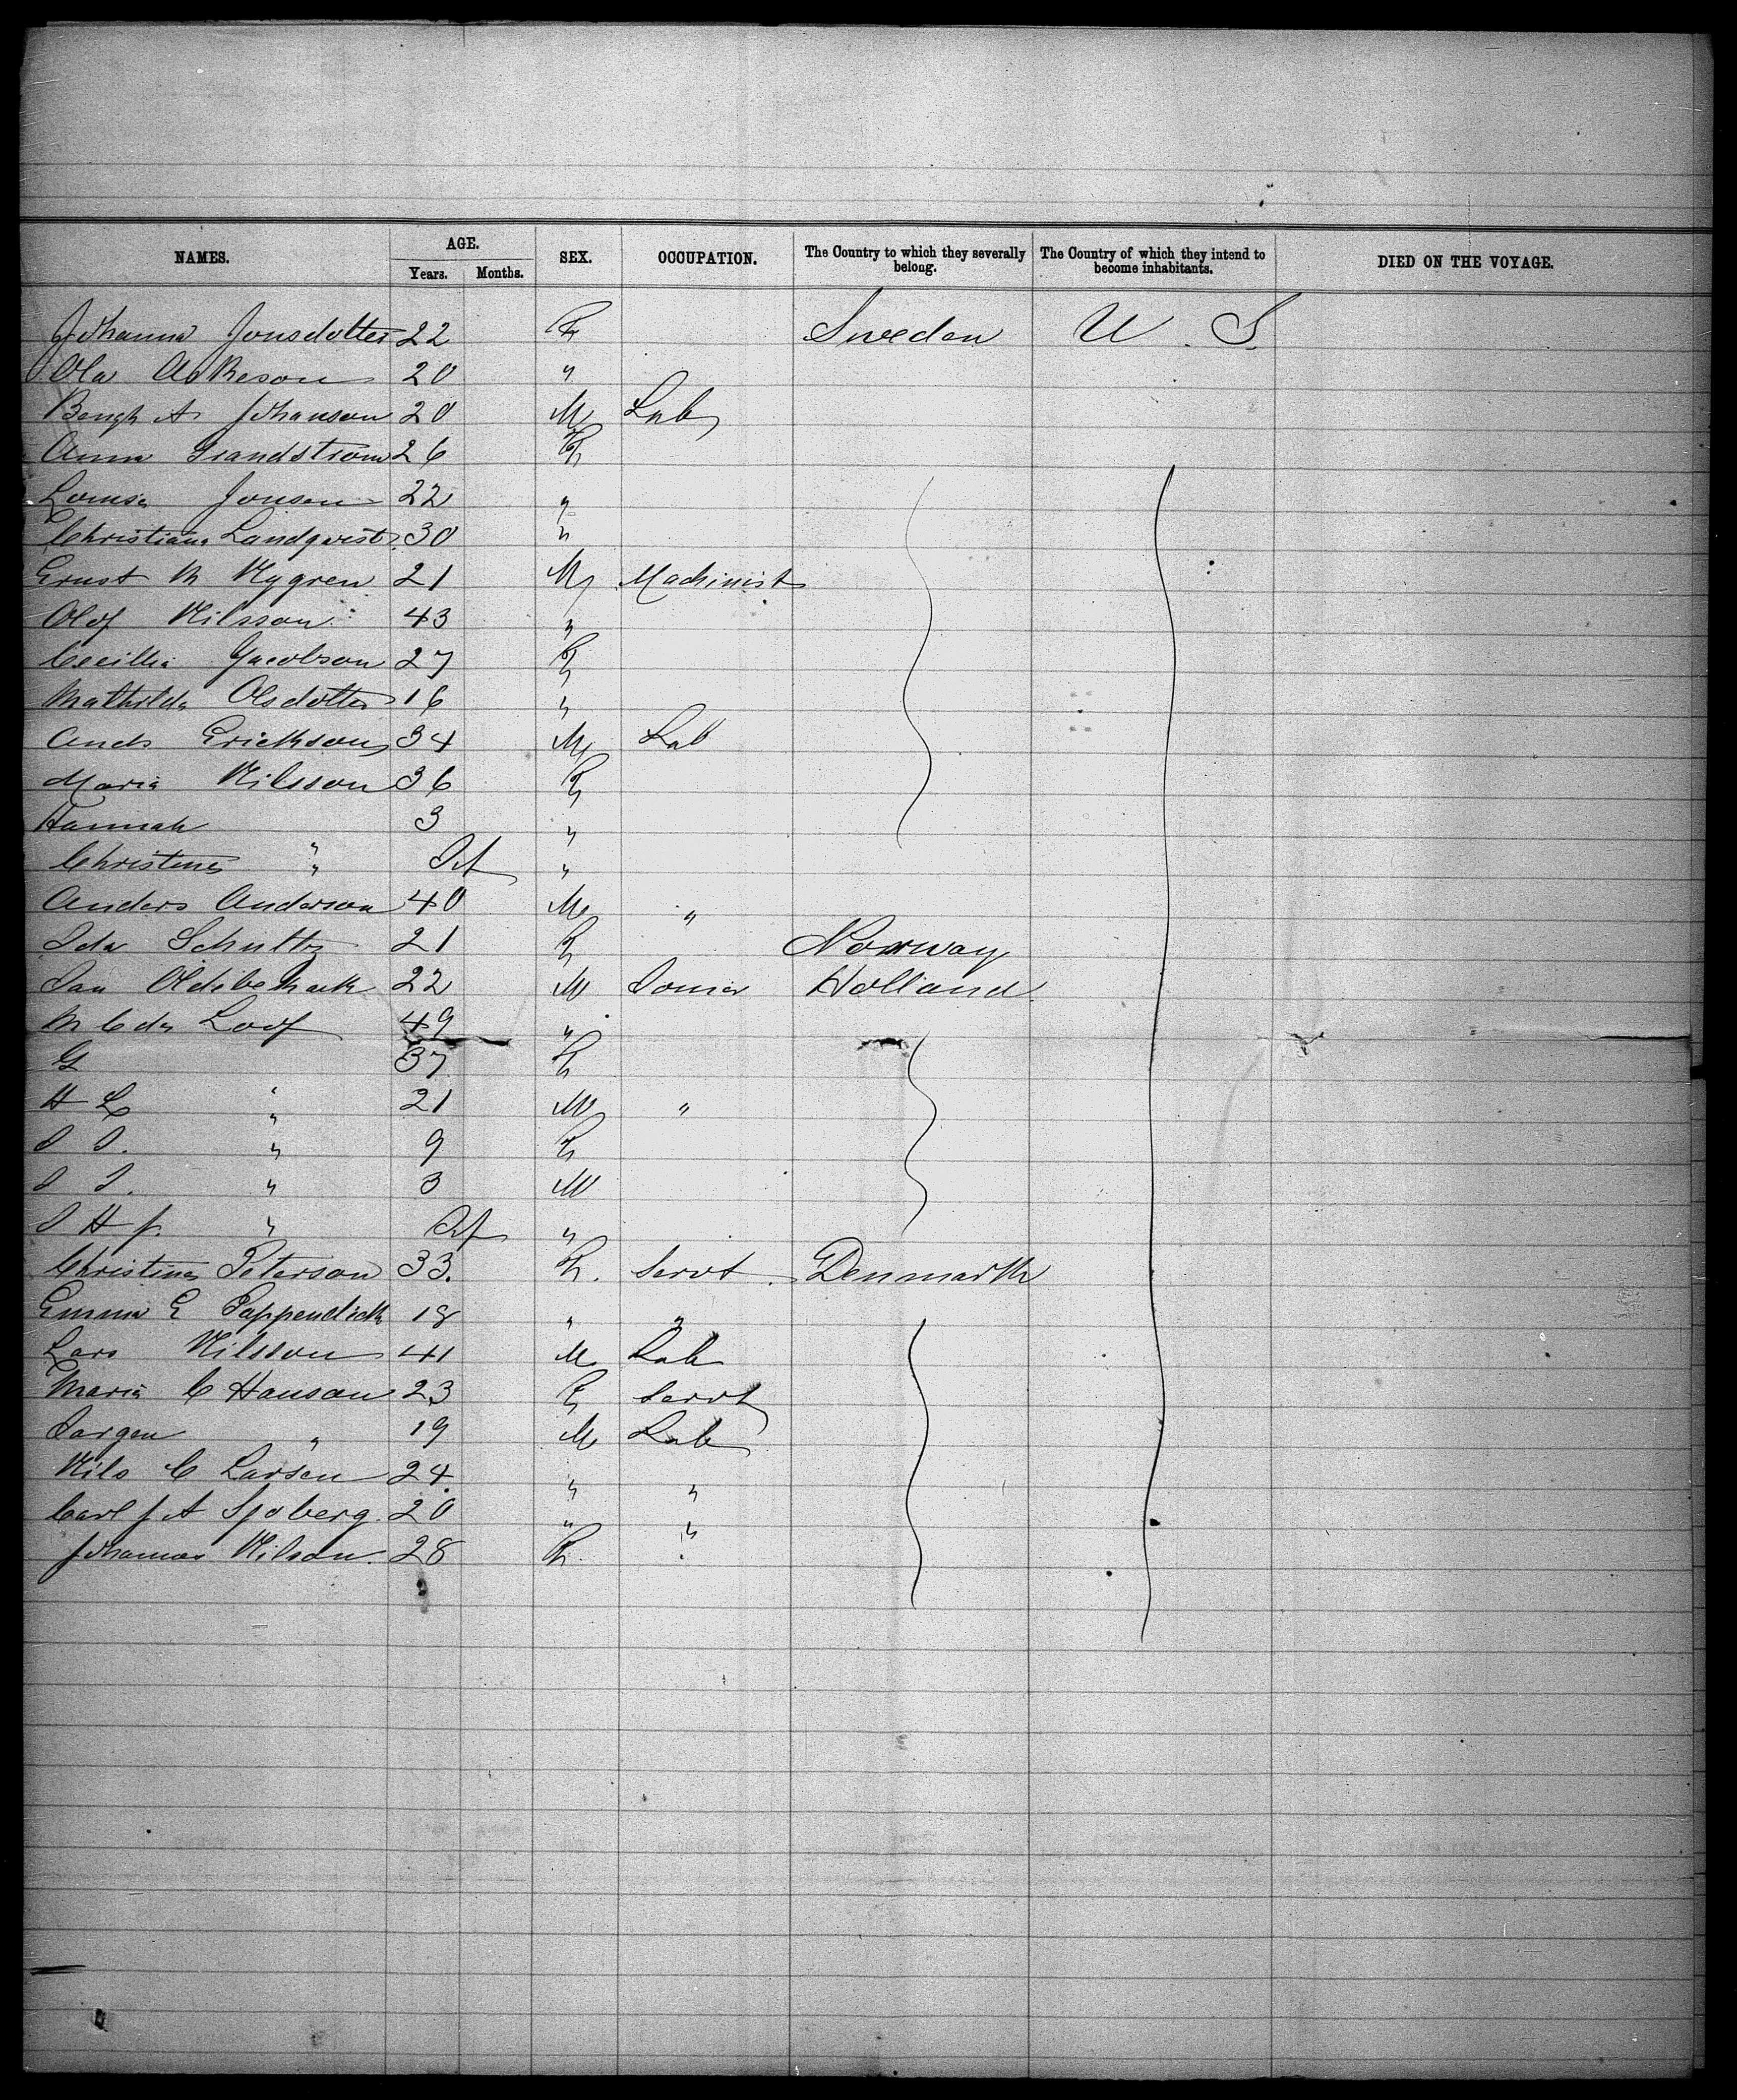 NAMES. AGE. SEX. OCCUPATION. The Country to which they severally belong. The Country of which they intend to become inhabitants. DIED ON THE VOYAGE.
Years. Months.
Johanna Jonsdotter 22 F Sweden U. S.
Ola Akkeson 20 "
Bengh A Johanson 20 M Lab
Anna Grandstrom 26 F
Louisa Jonsen 22 "
Christiana Landqvist 30 "
Ernst M Nygren 21 M Machinist
Olof Nilsson 43 "
Cecillia Jacobson 27 F
Mathilda Olsdotter 16 "
Ands Erickson 34 M Lab
Maria Nilsson 36 F
Hannah " 3 "
Christina " Inf "
Anders Anderson 40 M "
Ida Schultz 21 F Norway
Jan 22 M Holland
M C de Loof 49 "
G 37 F
H L " 21 M "
I I. " 9 F
I I. " 3 M
I H J. " Inf "
Christina Peterson 33. F. Servt. Denmark
Emma E Pappendick 18 " "
Lars Nilsson 41 M Lab
Maria C Hansan 23 F Servt
Jorgen " 19 M Lab
Nils C Larsen 24. " "
Carl J A Sjoberg. 20 " "
Johannas Nilson. 28 F. "